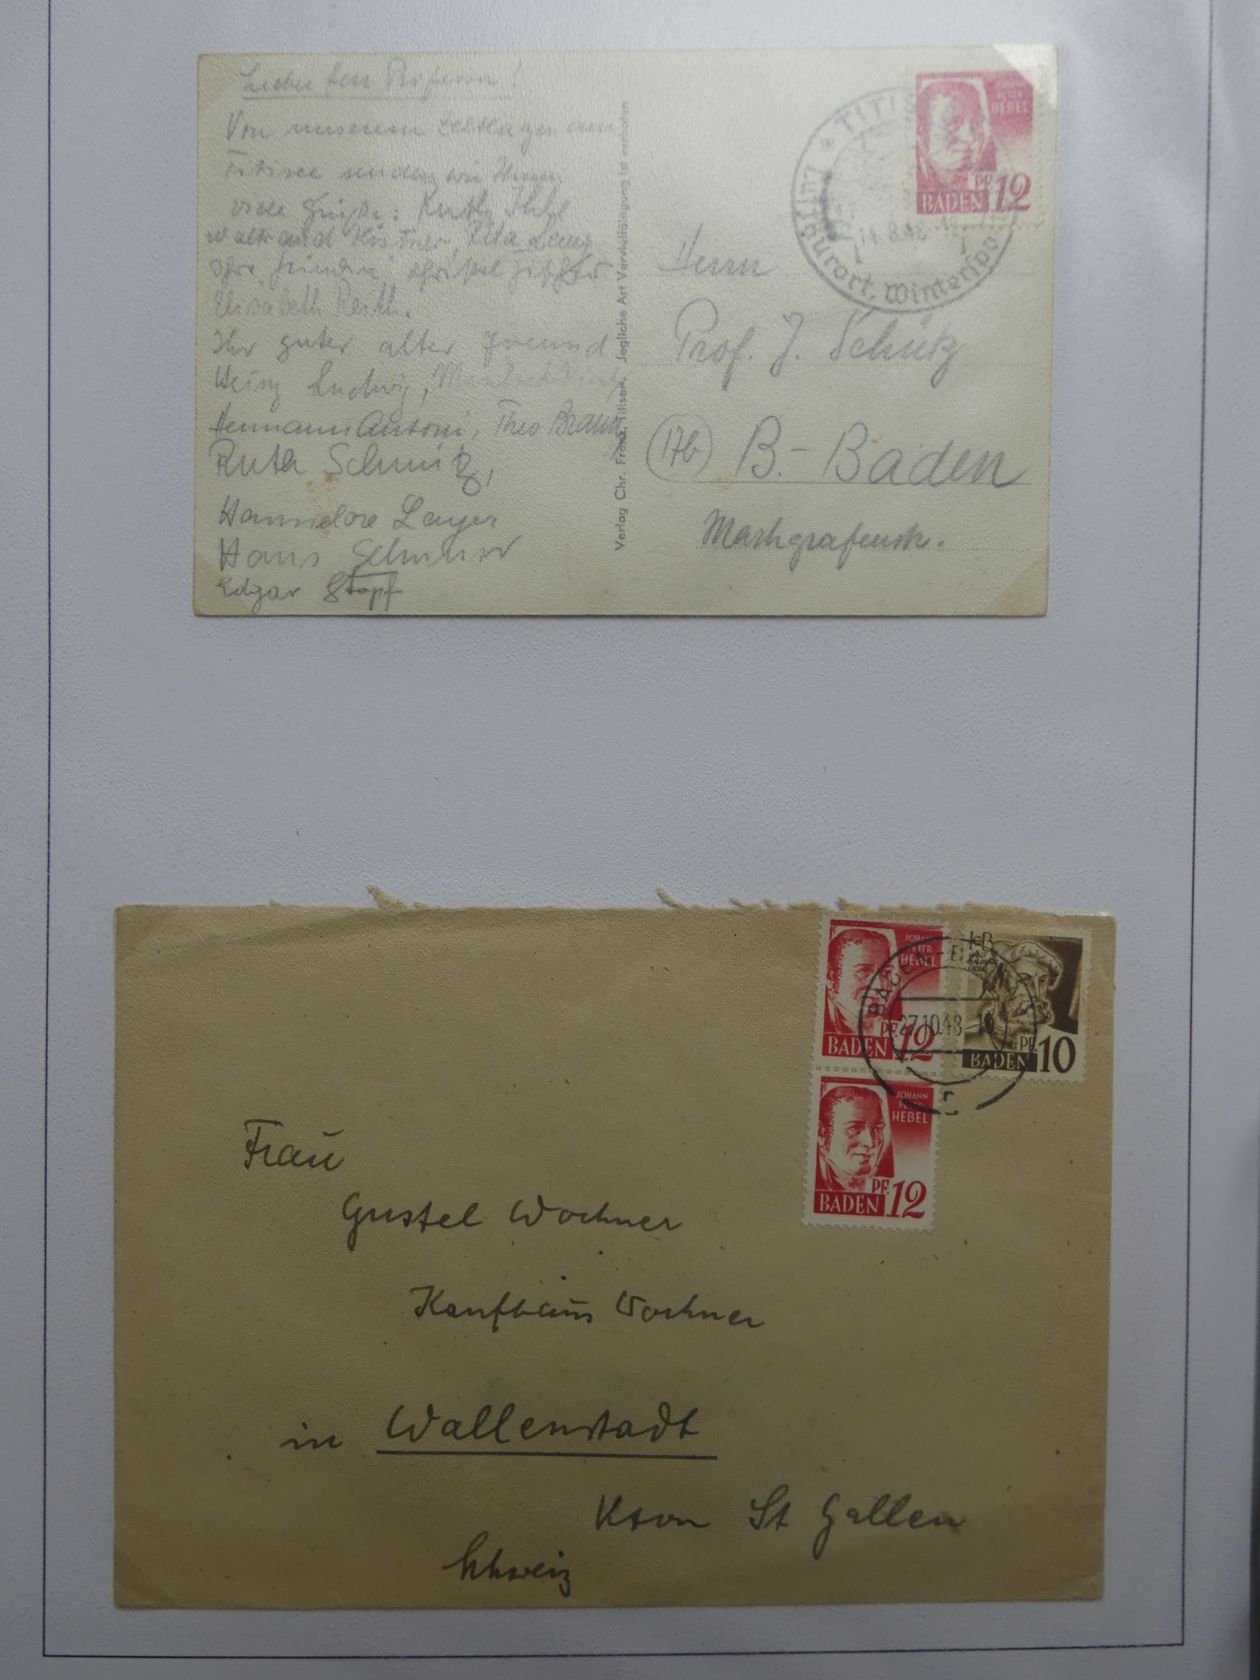 Lieber Herr Professor!
Von unserem Zeltlager am
Titisee senden wir Ihnen
viele Grüße: Ruth Ihle
Waltraud Kistner, Rita Lang
Ihre Freundin
Elisabeth Reith.
Ihr guter alter Freund
Heinz Ludwig, Manfred
Hermann Antoni, Theo Braun
Ruth Schmitz,
Hannelore Layer
Hans
Edgar Stopf
Verlag Chr. Franz, Titisee. Jegliche Art Vervielfältigung ist verboten
JOHANN
PETER
HEBEL
PF 12
BADEN
TITI
14.8.48
Kurort, Winterspo
Herrn
Prof. J. Schütz
(17b) B.-Baden
Markgrafenstr.
JOHANN
PETER
HEBEL
PF. 12
BADEN
27.10.48
PF. 10
BADEN
JOHANN
PETER
HEBEL
PF. 12
BADEN
Frau
Gustel Wochner
Kaufhaus Wochner
in Wallenstadt
Kton St Gallen
Schweiz